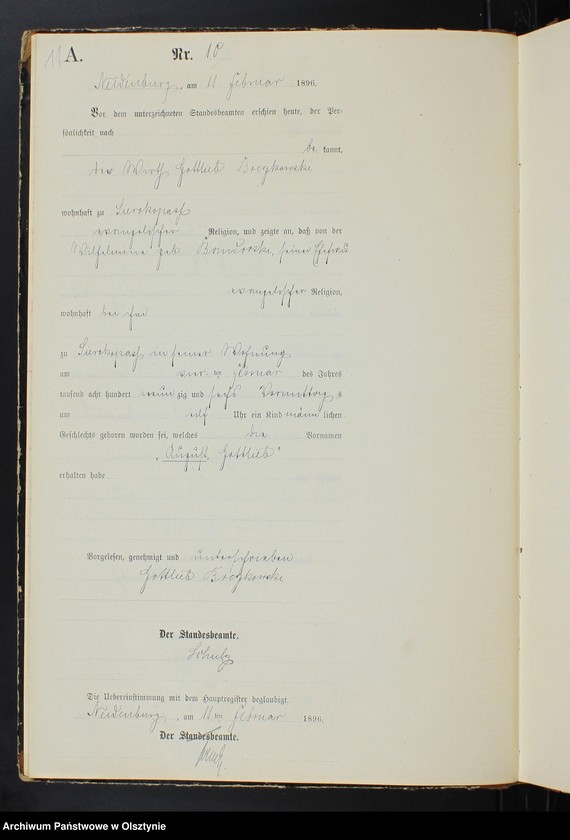 A.
Nr. 10
Neidenburg, am 11 Februar 1896.
Vor dem unterzeichneten Standesbeamten erschien heute, der Per-
sönlichkeit nach
be kannt,
der Wirth Gottlieb
wohnhaft zu
evangelischer Religion, und zeigte an, daß von der
Wilhelmine geb. seiner Ehefrau
evangelischer Religion,
wohnhaft bei ihm
zu in seiner Wohnung
am Februar des Jahres
tausend acht hundert neun zig und sechs Vormittags
um elf Uhr ein Kind männ lichen
Geschlechts geboren worden sei, welches die Vornamen
"August Gottlieb"
erhalten habe
Vorgelesen, genehmigt und unterschrieben
Gottlieb
Der Standesbeamte.
Schulz
Die Uebereinstimmung mit dem Hauptregister beglaubigt.
Neidenburg, am 11 ten Februar 1896.
Der Standesbeamte.
Archiwum Państwowe w Olsztynie